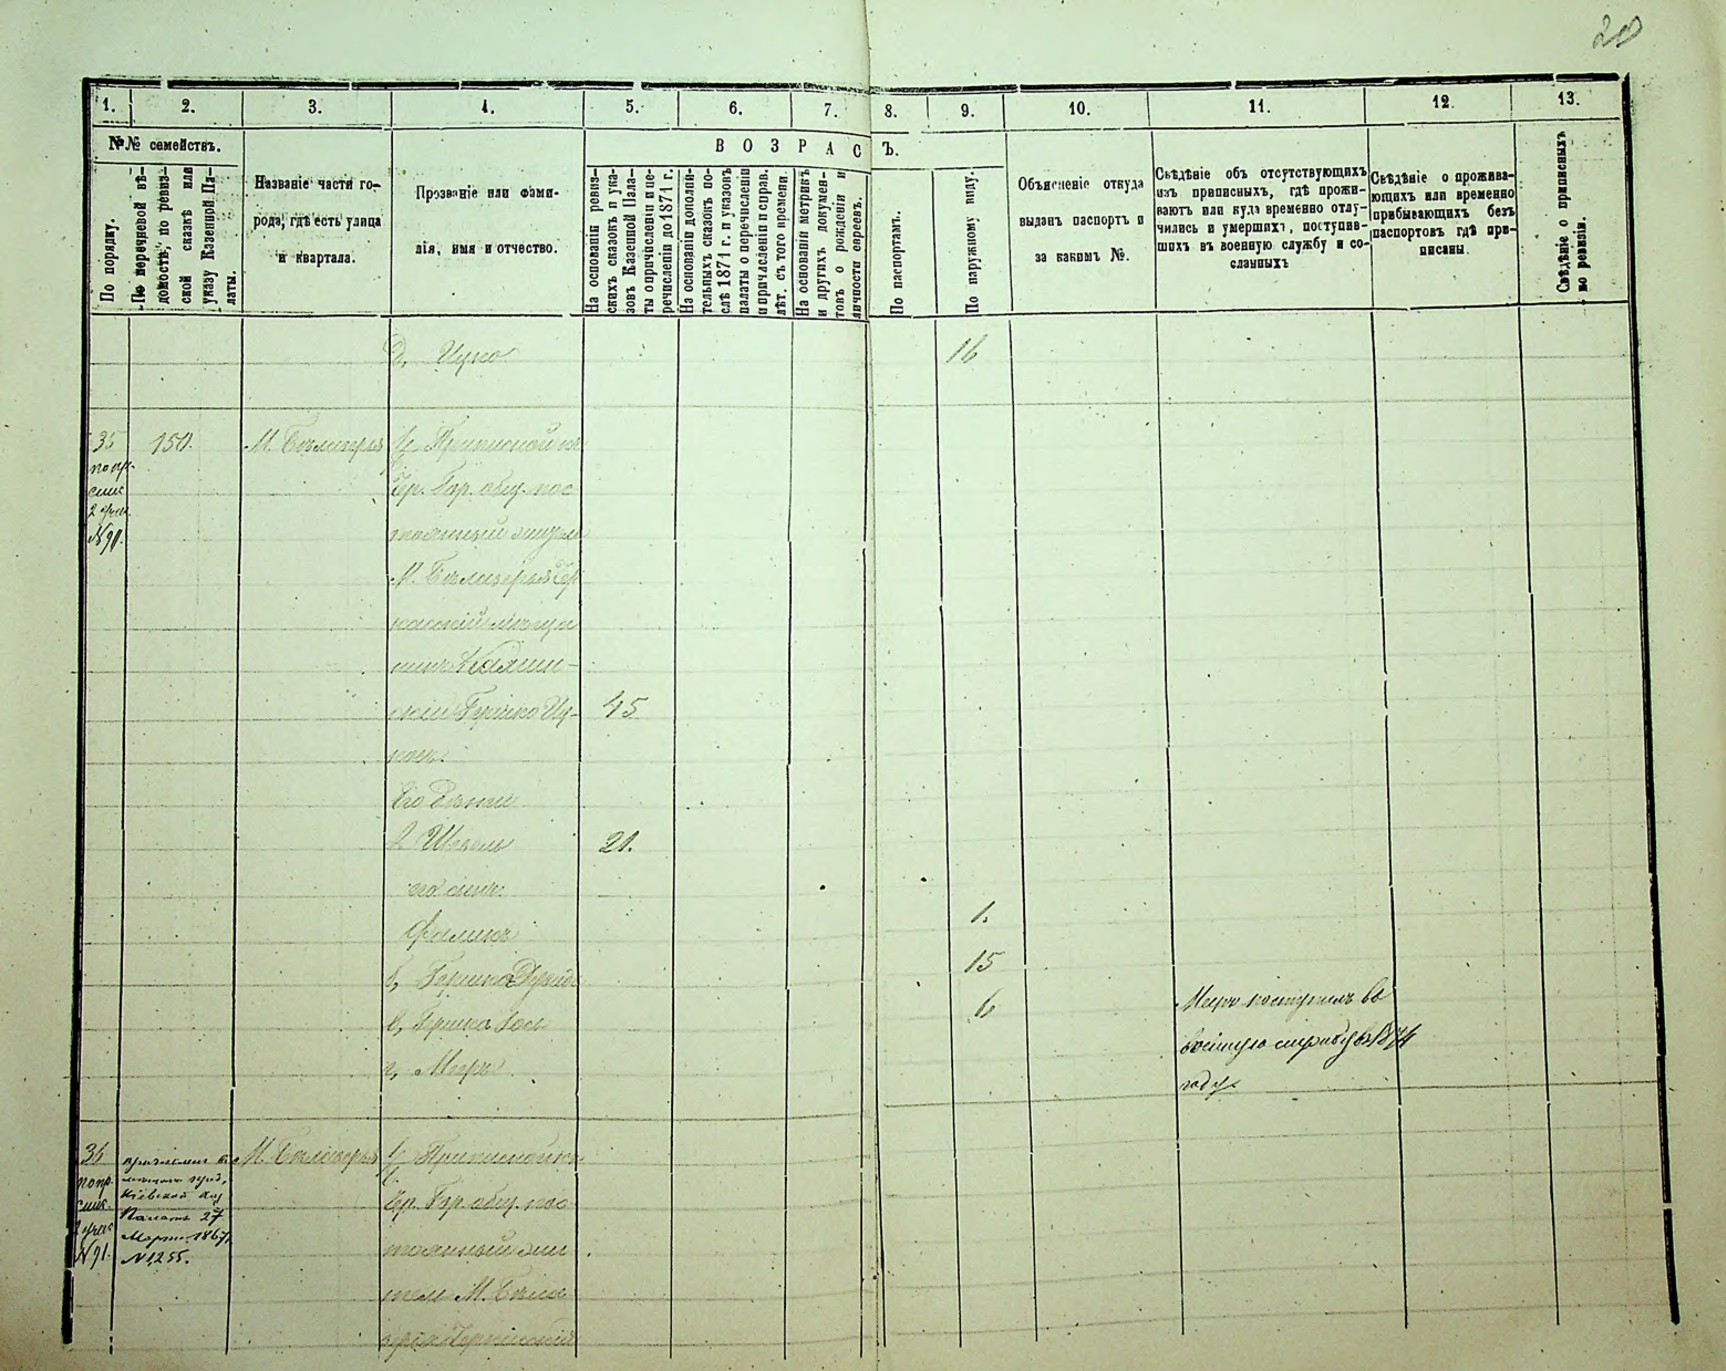 20
1. 2. 3. 4. 5. 6. 7. 8. 9. 10. 11. 12. 13.
№№ семействъ.
По порядку.
По перечневой вѣ-
домости, по ревиз-
ской сказкѣ или
указу Казенной Па-
латы.
Названіе части го-
рода, гдѣ есть улица
и квартала.
Прозваніе или фами-
лія, имя и отчество.
ВОЗРАС Ъ.
На основаніи ревиз-
скихъ сказокъ и ука-
зовъ Казенной Пала-
ты опричисленіи и пе-
речисленіи до 1871 г.
На основаніи дополни-
тельныхъ сказокъ по-
слѣ 1871 г. и указовъ
палаты о перечисленіи
и причисленіи и справ.
лѣт. съ того времени.
На основаніи метрикъ
и другихъ докумен-
товъ о рожденіи и
личности евреевъ.
По паспортамъ.
По наружному виду.
Объясненіе откуда
выданъ паспортъ и
за какимъ №.
Свѣдѣніе объ отсутствующихъ
изъ приписныхъ, гдѣ прожи-
ваютъ или куда временно отлу-
чились и умершихъ, поступив-
шихъ въ военную службу и со-
сланныхъ
Свѣдѣніе о прожива-
ющихъ или временно
прибывающихъ безъ
паспортовъ гдѣ при-
писаны.
Свѣдѣніе о приписныхъ
по ревизіи.
д, Ицко 16
35 150. М. Бѣлозерья Приписной къ
по пр.
спис. Чр. Гор. общ. пос-
2 учас.
№90. тоянный житель
М. Бѣлозерья Чер-
касскій мѣща-
нинъ
Гершко Иц- 45
ковъ.
Его дѣти
а Шмель 21.
его сынъ:
Фаликъ 1.
б, Гершко 15
в, 6
г, Мееръ
Мееръ поступилъ въ
военную службу въ 1874
году.
36 причислен М. Бѣлозерья Приписной къ
по пр.
спис. Кіевской Каз.
2 учас. Палаты 27
№91. Марта 1867 г.
№1255.
Чр. Гор. общ. пос-
тоянный жи-
тель М. Бѣло-
зерья Черкасскій